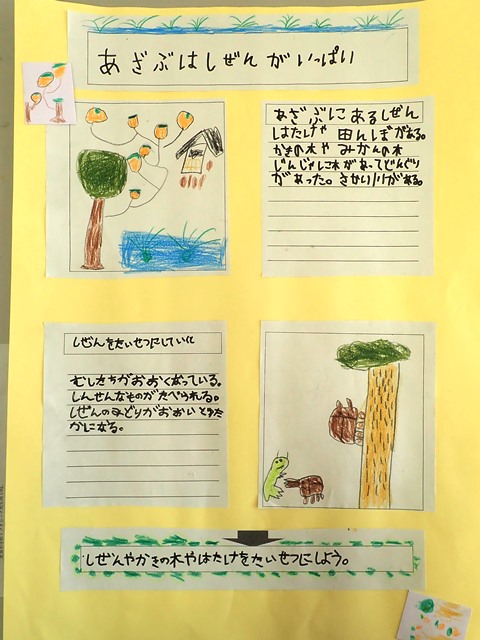 あざぶはしぜんがいっぱい
あざぶにあるしぜん
はたけや田んぼがある。
かきの木やみかんの木
じんじゃに木があってどんぐり
があった。さかい川がある。
しぜんをたいせつにしていくと
むしたちがおおくなっている。
しんせんなものがたべられる。
しぜんのみどりがおおいとゆた
かになる。
しぜんやかきの木やはたけをたいせつにしよう。